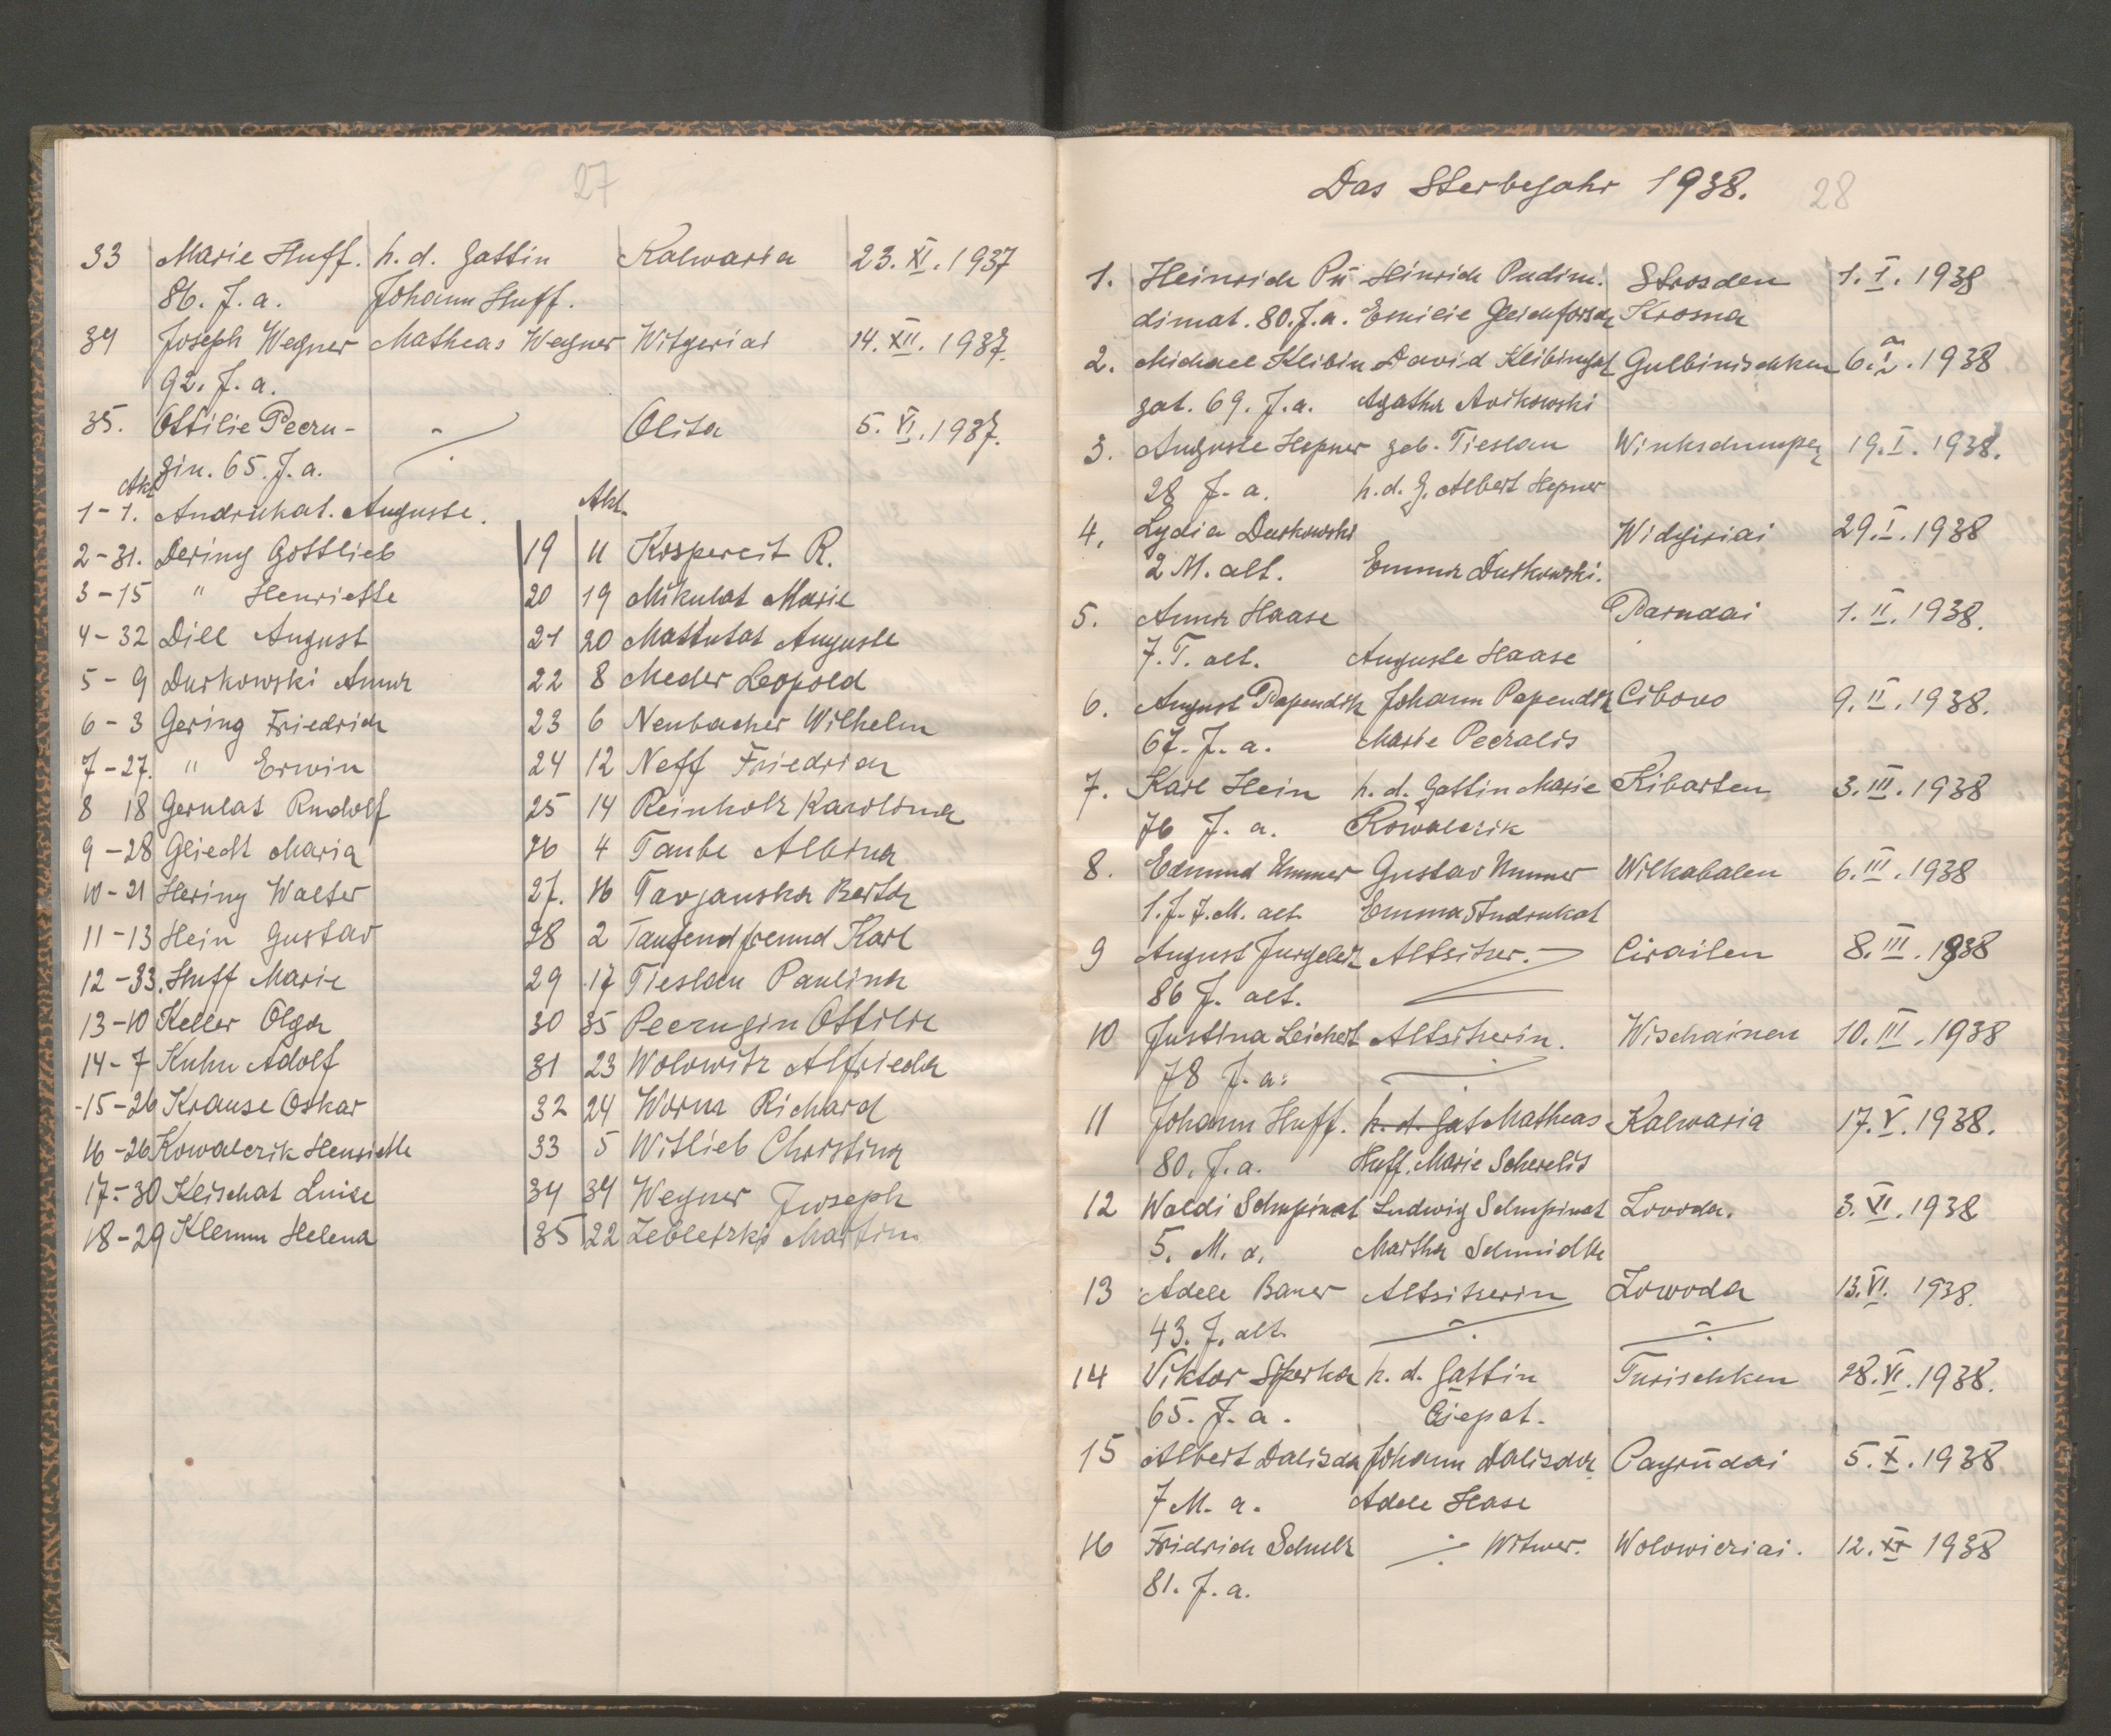 27
33 Marie Huff. h. d. Gattin Kalwaria 23. XI. 1937
86. J. a. Johann Huff.
34 Joseph Wegner Matheas Wegner Witgeriai 14. XII. 1937.
92. J. a.
35. Ottilie Peczu- ./. Olita 5. VI. 1937.
gin. 65. J. a.
Akt
1-1. Andrukat. Auguste.
2-31. Dering Gottlieb
3-15 " Henriette
4-32 Dill August
5-9 Durkowski Anna
6-3 Gering Friedrich
7-27. " Erwin
8 18 Gerulat Rudolf
9-28 Gliecht Maria
10-21 Hering Walter
11-13 Hein Gustav
12-33. Huff Marie
13-10 Keller Olga
14-7 Kuhn Adolf
15-26 Krause Oskar
16-26 Kowalczik Henriette
17-30 Kleischat Luise
18-29 Klemm Helena
Akt.
19 11 Kospereit R.
20 19 Mikulat Marie
21 20 Mattutat Auguste
22 8 Meder Leopold
23 6 Neubacher Wilhelm
24 12 Neff Friedrich
25 14 Reinholz Karolina
26 4 Taube Albina
27. 16 Tarjanska Berta
28 2 Tausendfreund Karl
29 17 Tieslau Paulina
30 35 Peczugin Ottilie
31 23 Wolowitz Alfrieda
32 24 Worm Richard
33 5 Witlieb Christina
34 34 Wegner Joseph
35 22 Zebletzki Martin
Das Sterbejahr 1938. 28
1. Heinrich Pu Hinrich Pudim. Strosden 1. I. 1938
dimat. 80. J. a. Emilie Krosna
2. Michael Klibin David Klibingat Gulbinischken 6. I. 1938
gat. 69. J. a. Agatha Avikowski
3. Auguste Hepner geb. Tieslau 19. I. 1938.
28 J. a. h. d. G. Albert Hepner
4. Lydia Durkowski Widgiriai 29. I. 1938
2 M. alt. Emma Durkowski.
5. Anna Haase Parudai 1. II. 1938.
7. T. alt. Auguste Haase
6. August Papendik Johann Papendik Cibovo 9. II. 1938.
67. J. a. Marie Peczalis
7. Karl Hein h. d. Gattin Marie Kibarten 3. III. 1938
76 J. a. Kowalczik
8. Edmund Ummer Gustav Ummer Wilkabalen 6. III. 1938
1. J. 7. M. alt. Emma Andrukat
9 August Jurgeleit Altsitzer. Cirailen 8. III. 1938
86 J. alt.
10 Justina Leichert Altsitzerin. Wischainen 10. III. 1938
78 J. a. ./.
11 Johann Huff. h. d. Gat Matheas Kalwaria 17. V. 1938.
80. J. a. Huff. Marie Scherelis
12 Waldi Schupinat Ludwig Schupinat Zovoda. 3. VI. 1938
5. M. a. Martha Schmidtke
13 Adele Bauer Altsitzerin Zowoda 13. VI. 1938.
43. J. alt. ./. ./.
14 Viktor Sperka h. d. Gattin Turischken 28. VI. 1938.
65. J. a. Eiepat.
15 Albert Dalisda Johann Dalisda Pagrudai 5. X. 1938
7 M. a. Adele Hase
16 Fridrich Schulz ./. Witwer. Wolowicziai. 12. XI 1938
81. J. a.